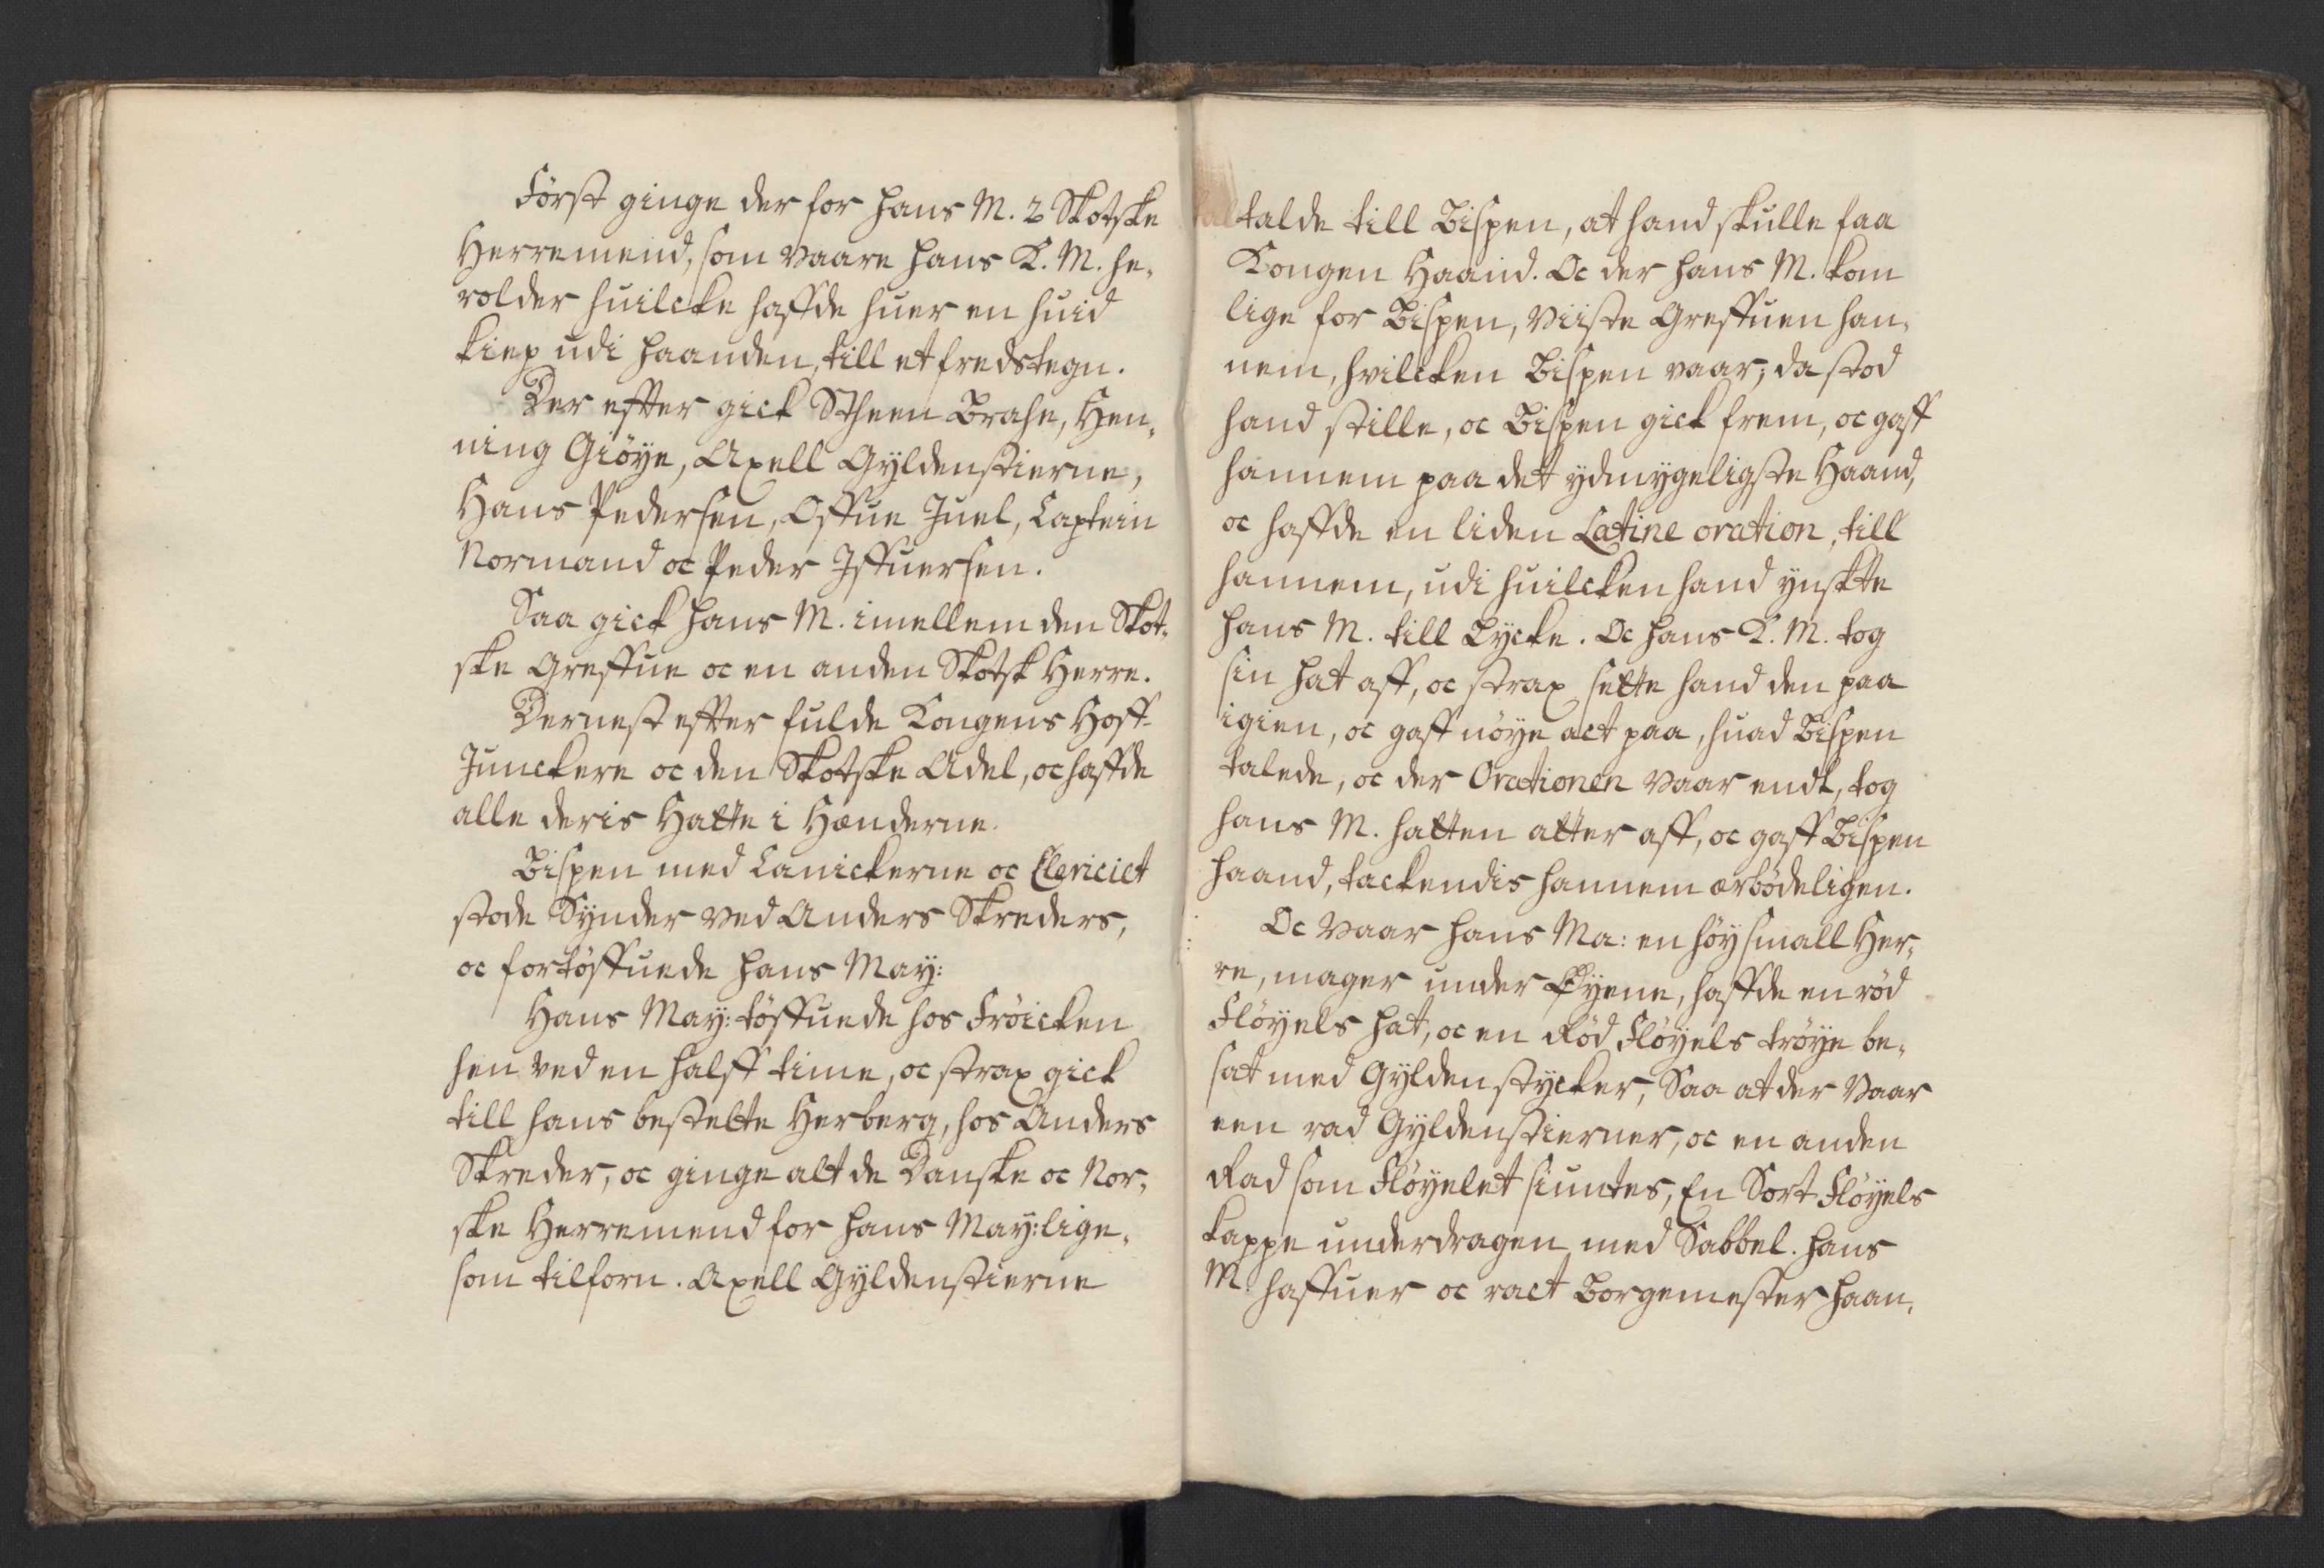 Først ginge der for hans M. 2 Skotske
Herremend, som vaare hans K. M. he,
rolder huilcke haffde huer en huid
kiep udi haanden, till et fredstegn.
Der effter gick Stheen Brahe, Hen,
ning Giøye, Axell Gyldenstierne,
Hans Pedersen, Offue Juel, Captein
Normand oc Peder Iffuersen.
Saa gick hans M. imellem den Skot,
ske Greffue oc en anden Skotsk Herre.
Dernest effter fulde Kongens Hoff-
Junckere oc den Skotske Adel, oc haffde
alle deris Hatte i Hænderne.
Bispen med Canickerne oc Clericiet
stode Synder ved Anders Skreders,
oc fortøffuede hans May:
Hans May: tøffuede hos Frøicken
hen ved en halff time, oc strax gick
till hans bestelte Herberg, hos Anders
Skreder, oc ginge alt de Danske oc Nor,
ske Herremend for hans May: lige,
som tilforn. Axell Gyldenstierne
talde till Bispen, at hand skulle faa
Kongen Haand. Oc der hans M. kom
lige for Bispen, viiste Greffuen han,
nem, hvilcken Bispen vaar; da stod
hand stille, oc Bispen gick frem, oc gaff
hannem paa det ydmygeligste Haand,
oc haffde en liden Latine oration, till
hannem, udi huilcken hand ynskte
hans M. till Lycke. Oc hans K. M. tog
sin hat aff, oc strax sette hand den paa
igien, oc gaff nøye act paa, huad Bispen
talede, oc der Orationen vaar endt, tog
hans M. hatten atter aff, oc gaff Bispen
haand, tackendis hannem ærbødeligen.
Oc vaar hans Ma: en høy small Her,
re, mager under Øyene, haffde en rød
Fløyels hat, oc en Rød Fløyels trøye be,
sat med Gylden stycker, Saa at der vaar
een rad Gyldenstierner, oc en anden
Rad som Fløyelet siuntes, En Sort Fløyels
kappe underdragen med Sabbel. hans
M. haffuer oc ract Borgemester haan,